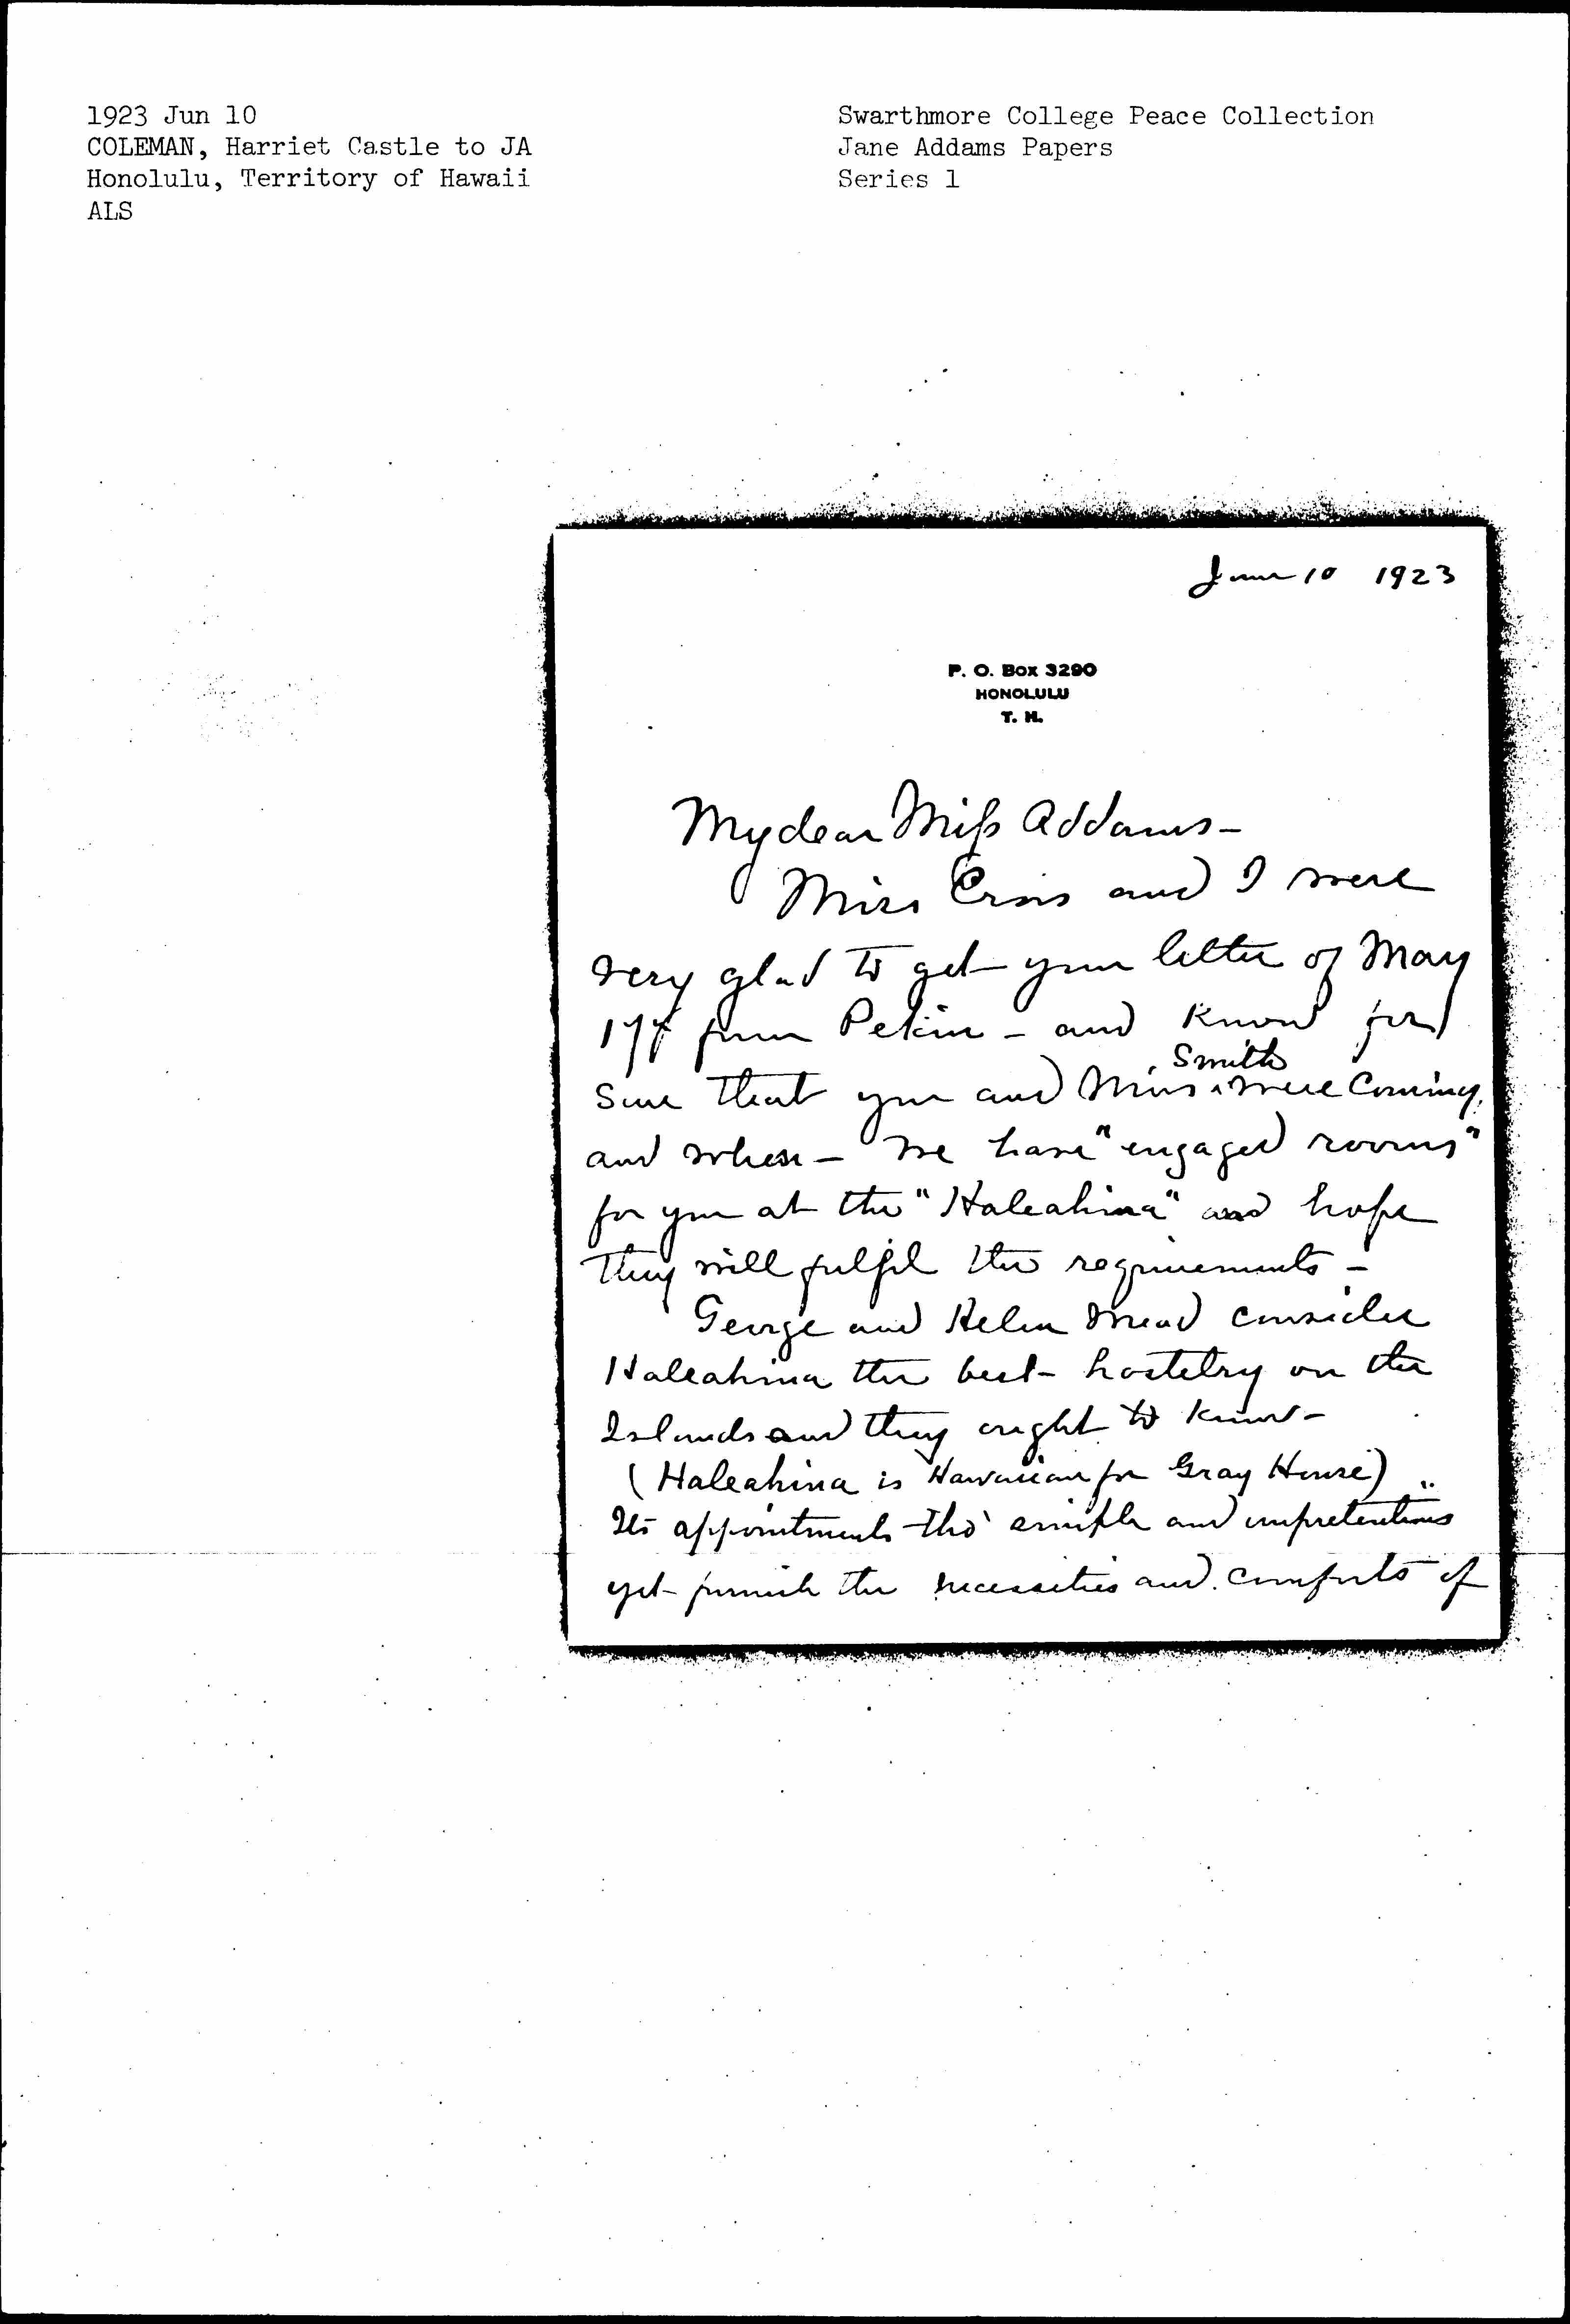 1923 Jun 10
COLEMAN, Harriet Castle to JA
Honolulu, Territory of Hawaii
ALS
Swarthmore College Peace Collection
Jane Addams Papers
Series 1
June 10 1923
P. O. Box 3290
HONOLULU
T. H.
My dear Miss Addams-
Miss and I were
very glad to get your letter of May
from Pekin - and know for
Smith
sure that you and Miss were coming,
and when - We have "engaged rooms"
for you at the "Haleahina" and hope
they will fulfil the requirements -
George and Helen Mead consider
Haleahina the best - hostelry on the
Islands and they ought to know -
(Haleahina is Hawaiian for Gray House)
Its appointments tho' simple and unpretentious
yet furnish the necessities and comforts of